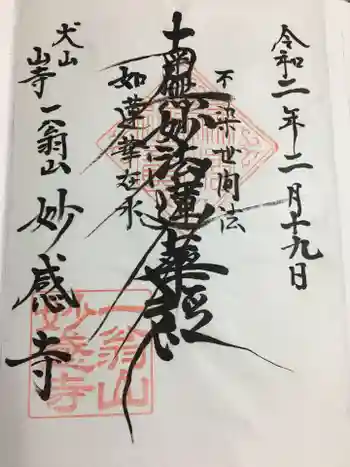 令和二年二月十九日
不染世間法
南無妙法蓮華経
如蓮華在水
犬山
山寺 一翁山 妙感寺
一翁山
妙感寺